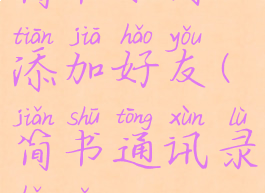 tiān jiā hǎo yǒu
添加好友(
jiǎn shū tōng xùn lù
简书通讯录